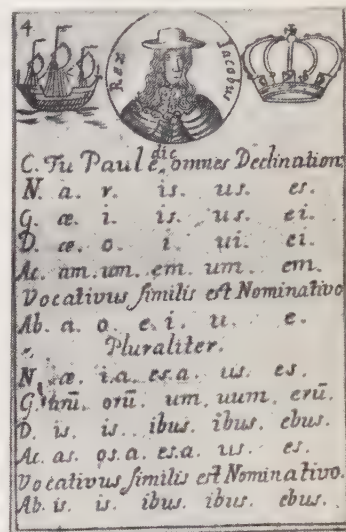 4
Rex Jacobus
dic
C. Tu Paule, omnes Declination:
N. a. r. is. us. es.
G. æ. i. is. us. ei.
D. æ. o. i. ui. ei.
Ac. am. um. em. um. em.
Vocativus similis est Nominativo
Ab. a. o. e. i. u. e.
Pluraliter.
N. æ. i. a. es. a. us. es.
G. arū. orū. um. uum. erū.
D. is. is. ibus. ibus. ebus.
Ac. as. os. a. es. a. us. es.
Vocativus similis est Nominativo.
Ab. is. is. ibus. ibus. ebus.